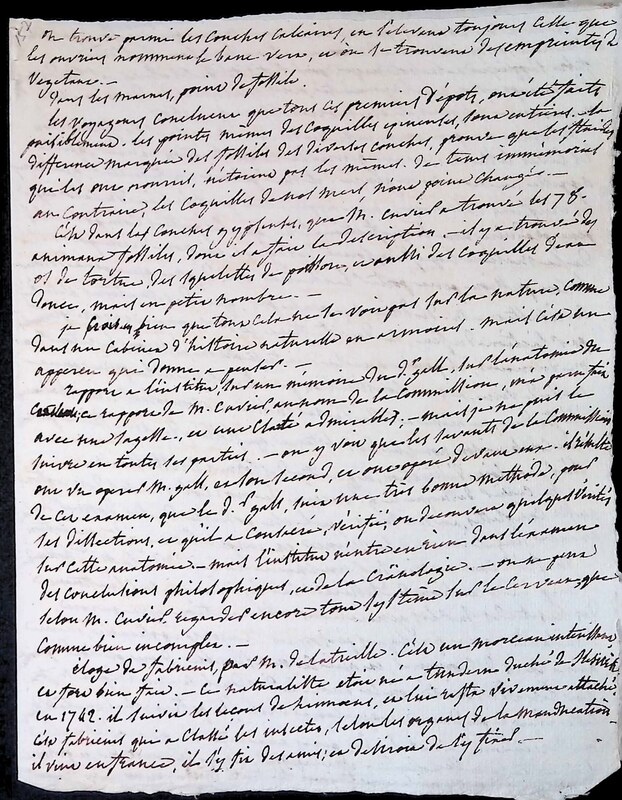 on trouve parmi les couches calcaires, en s'elevant toujours celle que
les ouvriers nomment le banc verd, et où se trouvent des empreintes de
vegetaux. —
dans les marnes, point de fossile.
les voyageurs concluent que tous ces premiers dépots, ont été faits
paisiblement. les pointes mêmes des coquilles épineuses, sont entières. la
difference marquée des fossiles des diverses couches, prouve que les fluides
qui les ont nourris, n'étoient pas les mêmes. de tems immémorial
au contraire, les coquilles de nos mers n'ont point changé. —
c'est dans les couches gypseuses, que M. cuvier a trouvé les 78.
animaux fossiles, dont il a fait la description. — il y a trouvé des
os de tortue, des squelettes de poisson, et aussi des coquilles d'eau
douce, mais en petit nombre. —
je crois bien que tout cela ne se voit pas sur la nature, comme
dans un cabinet d'histoire naturelle en armoires. mais c'est un
apperçu qui donne a penser. —
rapport a l'institut, sur un mémoire du dr. gall, sur l'anatomie du
cerveau; ce rapport de M. cuvier, au nom de la Commission, m'a paru fait
avec une sagesse, et une clarté admirables; — mais je ne puis le
suivre en toutes ses parties. — on y voit que les savants de la Commission
ont vu operer M. gall, et son second, et ont operé devant eux. il résulte
de cet examen, que le d. gall, suit une très bonne methode, pour
ses dissections, et qu'il a constaté, vérifié, ou decouvert quelques vérités
sur cette anatomie. — mais l'institut n'entre en rien dans l'examen
des conclusions philosophiques, et de la Crânologie. — on ne peut
selon M. Cuvier, regarder encore tout systême sur le cerveau, que
comme bien incomplet. —
éloge de fabricius, par M. de latreille. C'est un morceau intéressant
et fort bien fait. — Ce naturaliste etoit né a tundern duché de Sleswick
en 1742. il suivit les leçons de linnaeus, et lui resta vivement attaché.
c'est fabricius qui a classé les insectes, selon les organes de la manducation.
il vint en france, il s'y fit des amis, et desiroit de s'y fixer. —